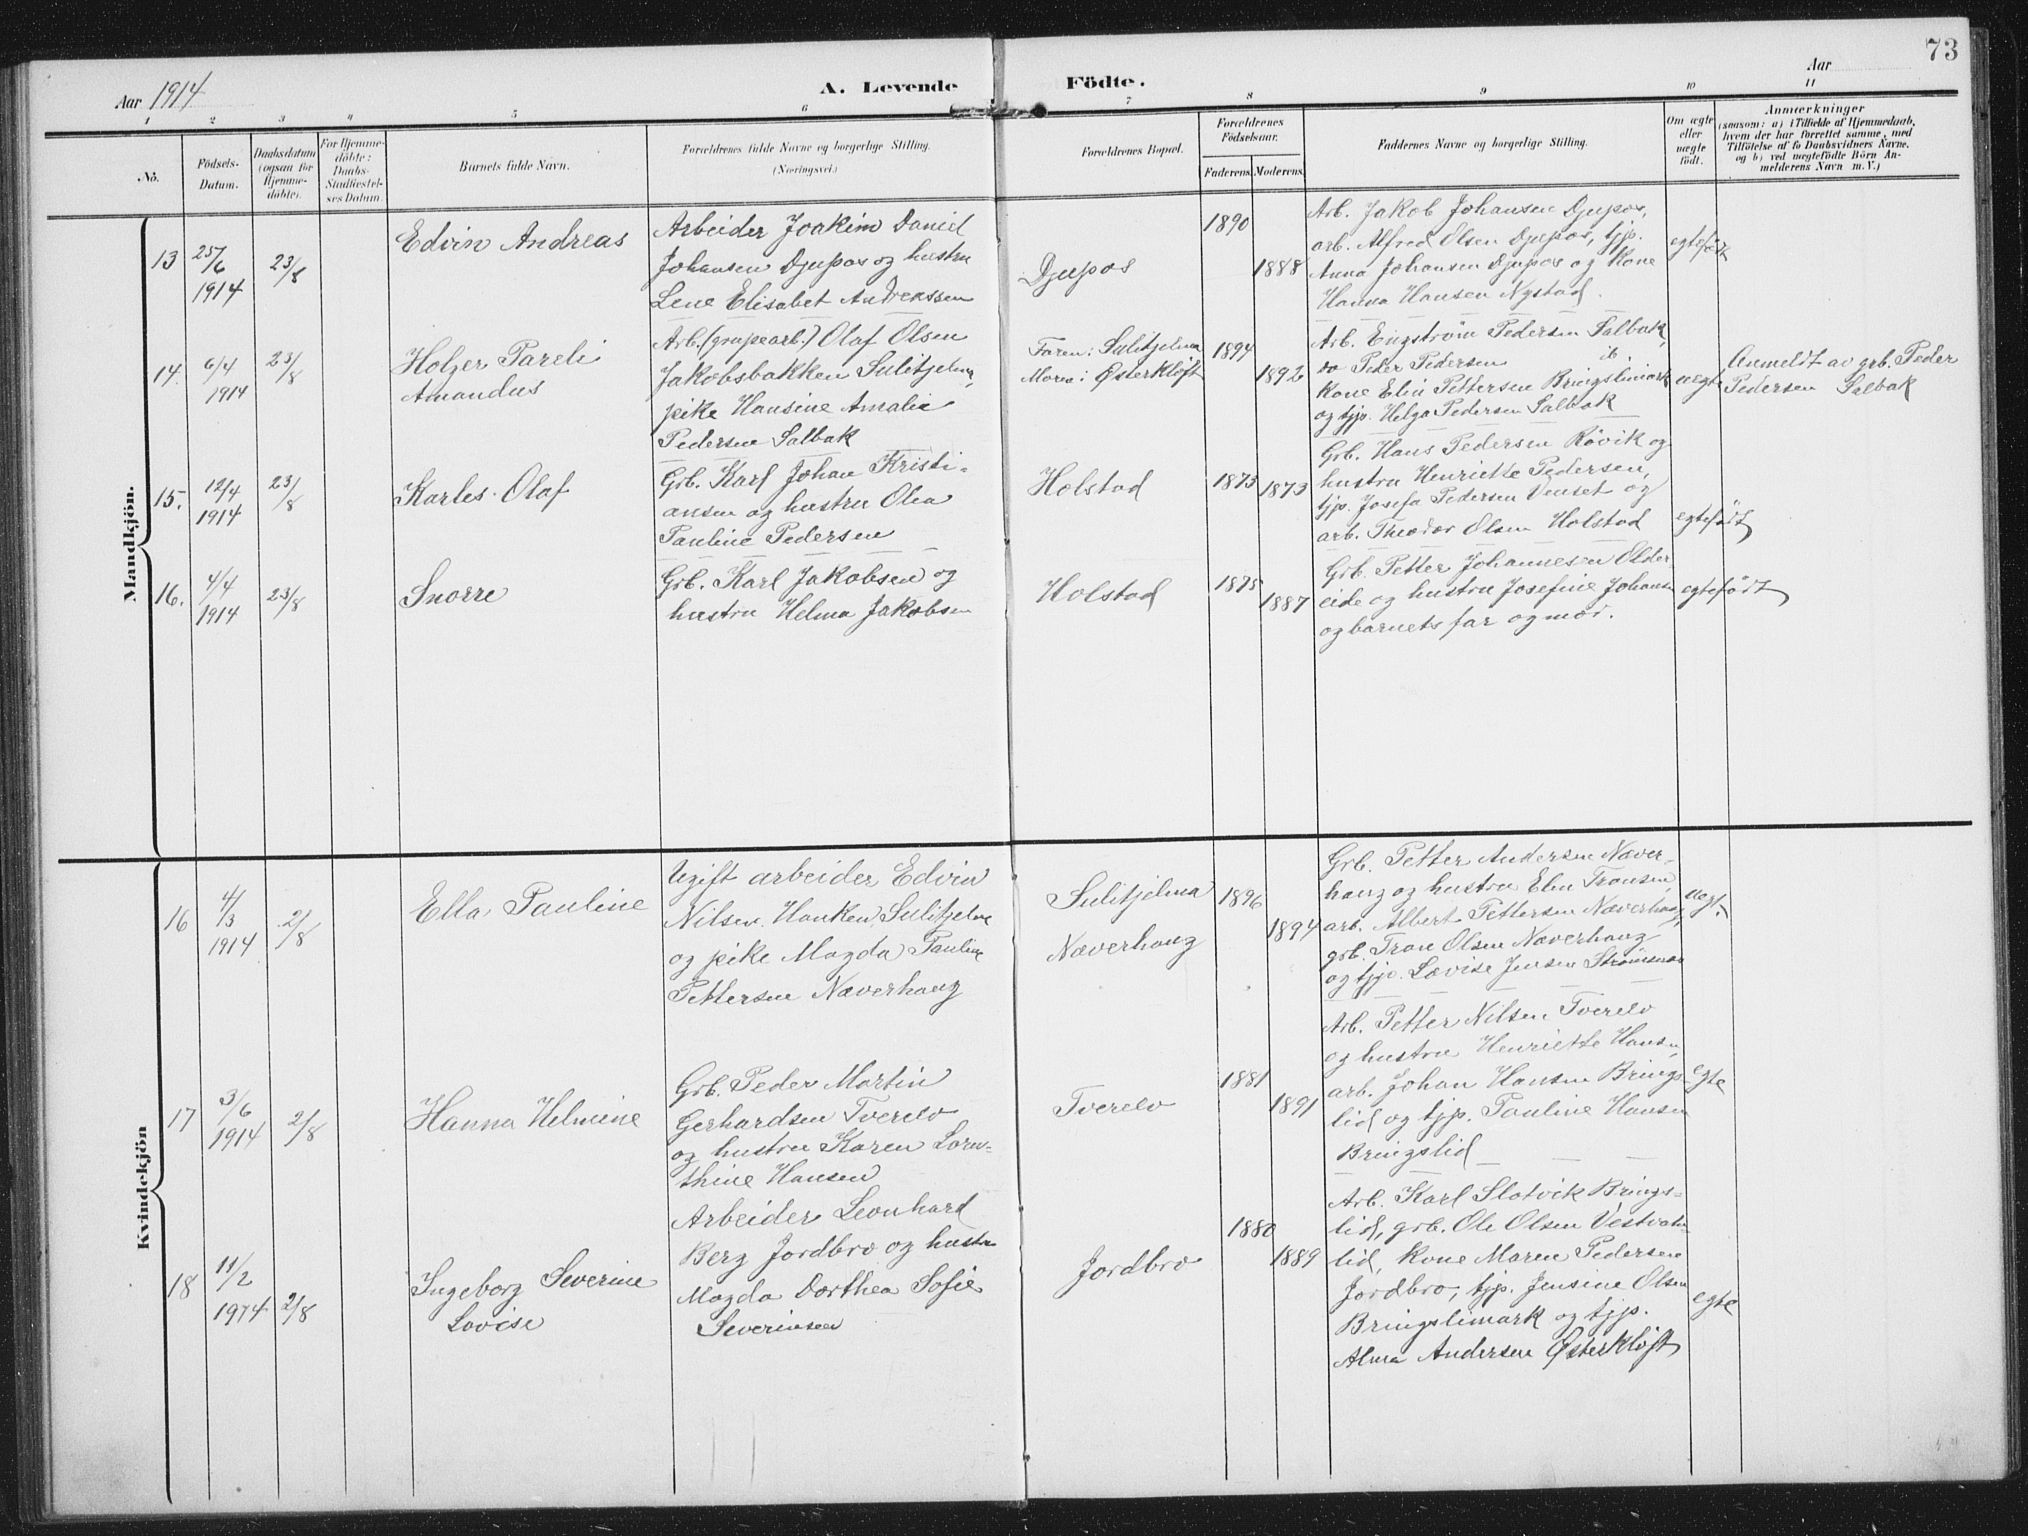 73
Aar 1914
A. Levende Födte.
Aar
1 2 3 4 5 6 7 8 9 10 11
No.
Födsels-
Datum.
Daabsdatum
(ogsaa for
Hjemme-
döbte).
For Hjemme-
döbte:
Daabs-
Stadfæstel-
ses Datum.
Barnets fulde Navn.
Forældrenes fulde Navne og borgerlige Stilling.
(Næringsvei.)
Forældrenes Bopæl.
Forældrenes
Födselsaar.
Faderens. Moderens.
Faddernes Navne og borgerlige Stilling.
Om ægte
eller
uægte
födt.
Anmærkninger
(saasom: a) i Tilfælde af Hjemmedaab,
hvem der har forrettet samme, med
Tilföielse af to Daabsvidners Navne,
og b) ved uægtefödte Börn An-
melderens Navn m. V.)
Mandkjön.
13
25/6
1914
23/8
Edvin Andreas
Arbeider Joakim Daniel
Johansen Djupos og hustru
Lene Elisabet Andreassen
Djupos
1890
1888
Arb. Jakob Johansen Djupos,
arb. Alfred Olsen Djupos, tjp.
Anna Johansen Djupos og kone
Hanna Hansen Nystad.
egtefødt
14.
6/4
1914
23/8
Holger Pareli
Amandus
Arb. (grupearb.) Olaf Olsen
Jakobsbakken Sulitjelma,
pike Hansine Amalie
Pedersen Salbak
Faren: Sulitjelma
Moren: Østerkløft
1894
1892
Arb. Engstrøm Pedersen Salbak,
do Peder Pedersen ib.
kone Elin Pettersen Bringslimark
og tjp. Helga Pedersen Salbak
uegte
Anmeldt av grb. Peder
Pedersen Salbak
15.
12/4
1914
23/8
Karles Olaf
Grb. Karl Johan Kristi-
ansen og hustru Olea
Pauline Pedersen
Holstad
1873
1873
Grb. Hans Pedersen Røvik og
hustru Henriette Pedersen,
tjp. Josefa Pedersen Venset og
arb. Theodor Olsen Holstad
egtefødt
16.
4/4
1914
23/8
Snorre
Grb. Karl Jakobsen og
hustru Helma Jakobsen
Holstad
1875
1887
Grb. Petter Johannesen Older
eide og hustru Josefine Johansen
og barnets far og mor.
egtefødt
Kvindekjön
16
4/3
1914
2/8
Ella Pauline
Ugift arbeider Edvin
Nilsen Hanken, Sulitjelma
og pike Magda Pauline
Pettersen Næverhaug
Sulitjelma
Næverhaug
1896
1894
Grb. Petter Andersen Næver-
haug og hustru Elen Tronsen,
arb. Albert Pettersen Næverhaug,
grb. Tron Olsen Næverhaug
og tjp. Lovise Jensen Strømsnes
uegt.
17
3/6
1914
2/8
Hanna Helmine
Grb. Peder Martin
Gerhardsen Tverelv
og hustru Karen Loren-
thine Hansen
Tverelv
1881
1891
Arb. Petter Nilsen Tverelv
og hustru Henriette Hansen,
arb. Johan Hansen Brings-
lid og tjp. Pauline Hansen
Bringslid
egte
18
11/2
1914
2/8
Ingeborg Severine
Lovise
Arbeider Leonhard
Berg Jordbro og hustru
Magda Dorthea Sofie
Severinsen
Jordbro
1880
1889
Arb. Karl Slotvik Brings-
lid, grb. Ole Olsen Vestvatn
lid, kone Maren Pedersen
Jordbro, tjp. Jensine Olsen
Bringslimark og tjp.
Alma Andersen Østerkløft
egte